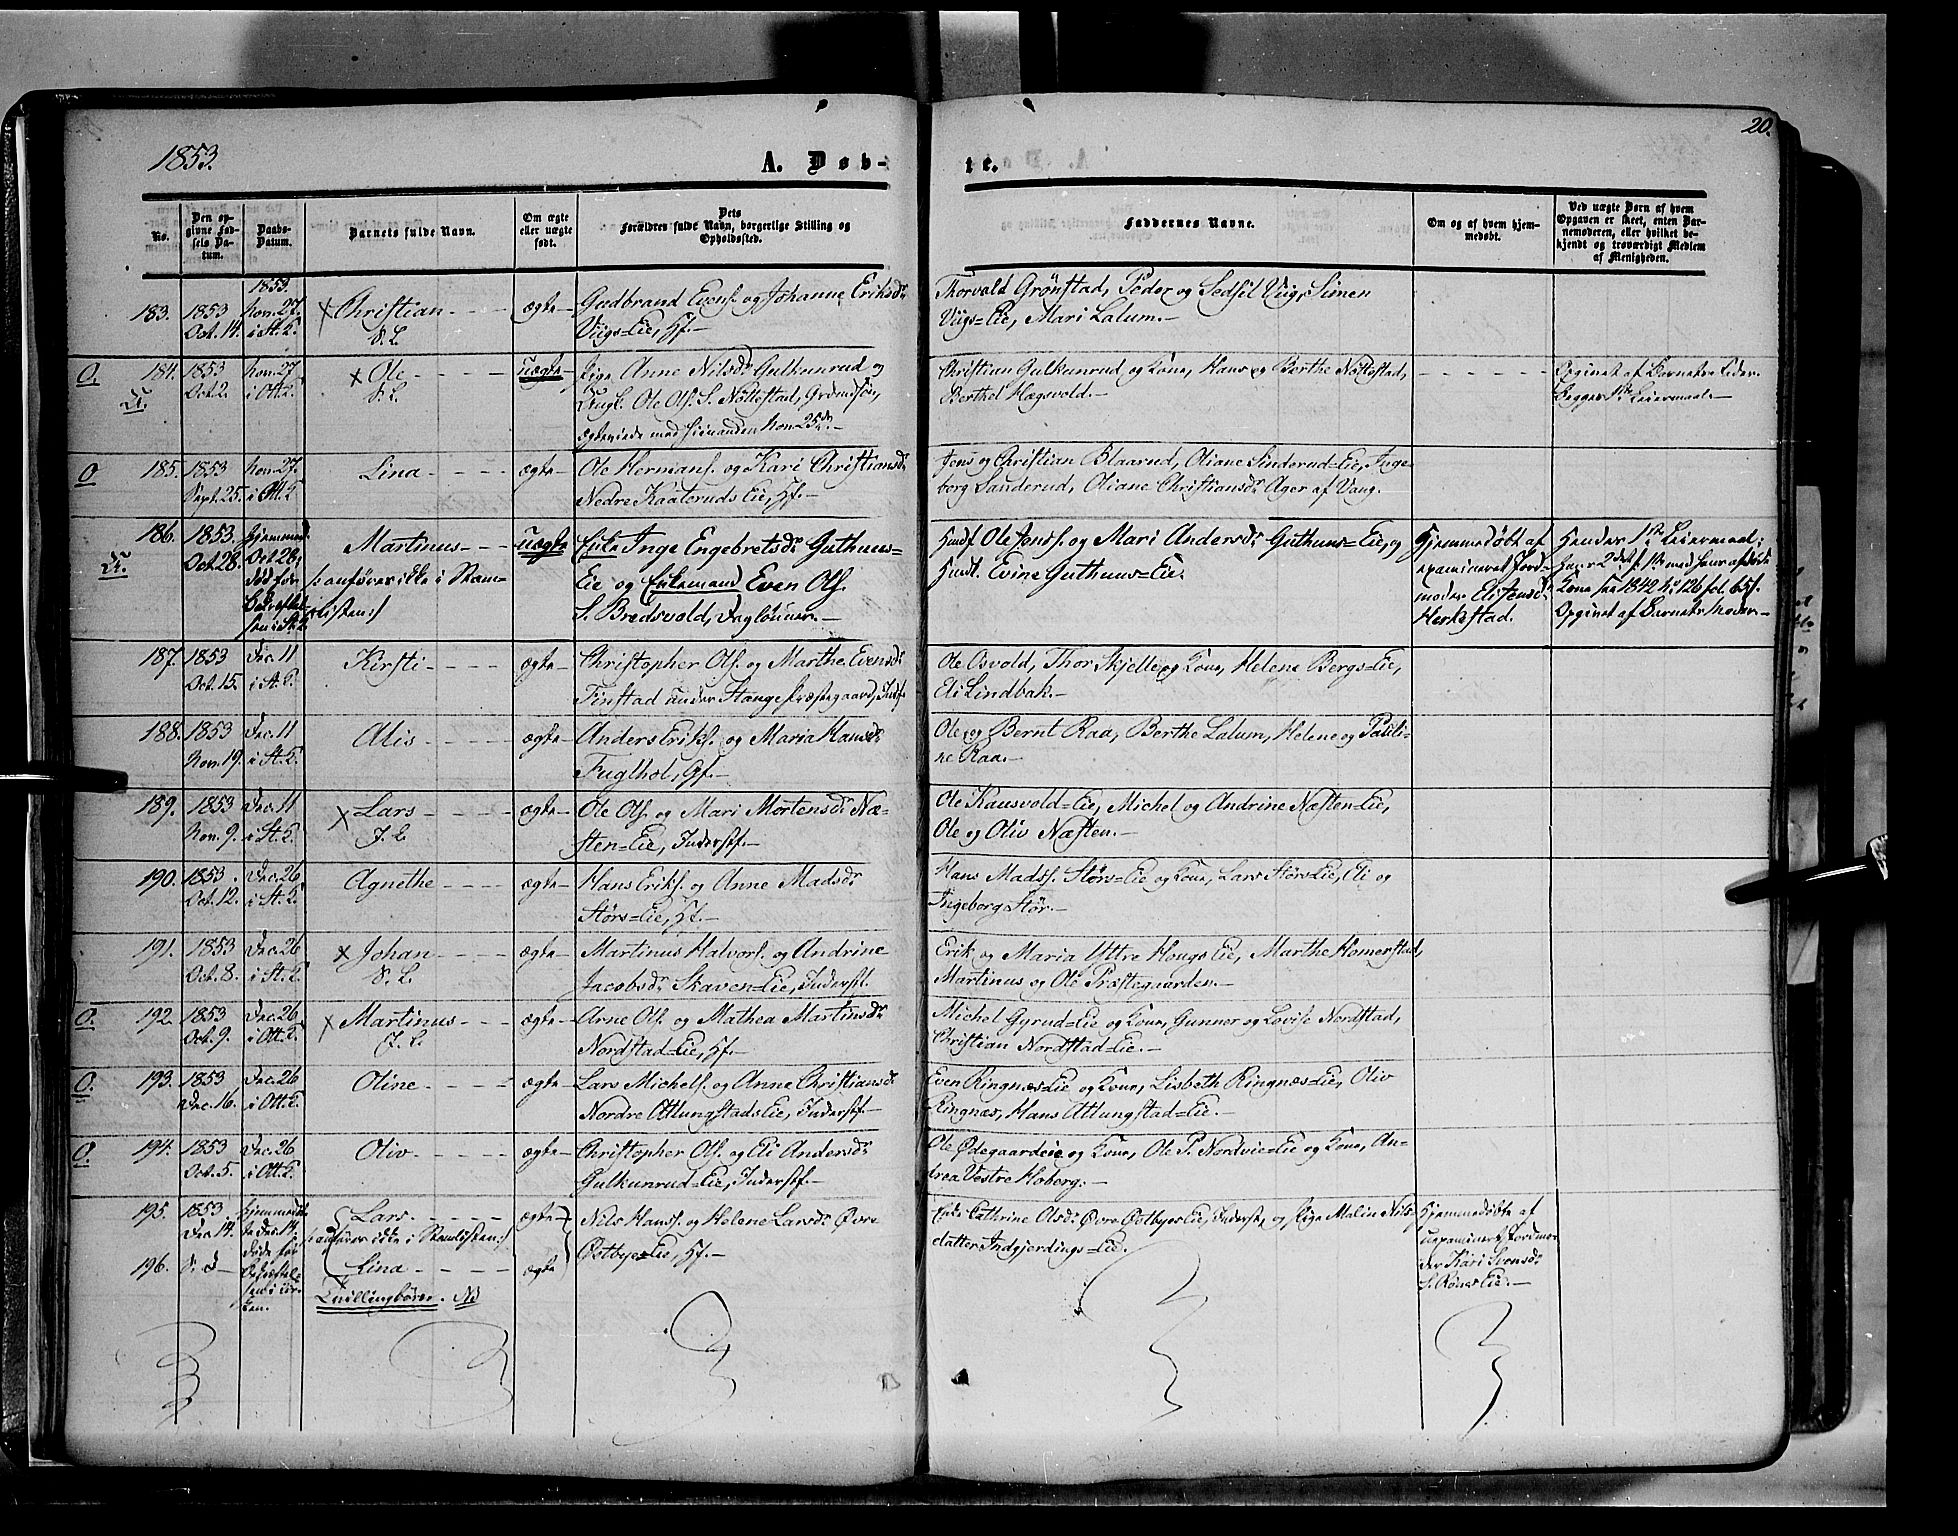 1853.
A. Døb-
te.
20.
No.
Den op-
givne Fød-
sels Da-
tum.
Daabs-
Datum.
Barnets fulde Navn.
Om ægte
eller uægte
født.
Dets
Forældres fulde Navn, borgerlige Stilling og
Opholdssted.
Faddernes Navne.
Om og af hvem hjem-
medøbt.
Ved uægte Børn af hvem
Opgaven er skeet, enten Bar-
nemoderen, eller hvilket be-
kjendt og troværdigt Medlem
af Menigheden.
183. 1853 Oct. 14.
1853. Nov. 27. i St. K.
Christian
ægte
Gudbrand Evens. og Johanne Eriksdr
Viigs=Eie, Hf.
Thorvald Grönstad, Peder og Sedsil Viig, Simen
Viigs=Eie, Mari Lalum.
O. 184. 1853 Oct. 2.
Nov. 27 i Ott. K.
Ole
uægte
Pige Anne Nilsdr Gulkunrud og
Ungk. Ole Ols. S. Nöttestad, Grd.mdsön,
ægteviede med hinanden Nov. 25de
Christian Gulkunrud og Kone, Hans og Berthe Nöttestad,
Berthel Hægsvold.
Opgivet af Barnets Fader.
Begges 1ste Leiermaal.
O 185. 1853 Sept. 25.
Nov. 27. i Ott. K.
Lina
ægte
Ole Hermans. og Kari Christiansdr
Nedre Kaaterud Eie, Hf.
Jens og Christian Blaarud, Oliane Sinderud=Eie, Inge-
borg Sanderud, Oliane Christiansdr Ager af Vang.
186. 1853. Oct. 28.
Hjemmed. Oct. 28; död før
Martinus
/:anföres ikke i Stam-
listen:/
uægte
Enke Inge Engebretsdr Guthuus=
Eie og Enkemand Even Ols.
S. Bredsvold, Daglönner.
Husf. Ole Jens. og Mari Andersdr Guthuus=Eie, og
Evine Guthuus=Eie.
Hjemmedöbt af
examineret Jord-
moder Eli Jensdr
Herkestad.
Hendes 1ste Leiermaal;
Opgivet af Barnets Moder.
187. 1853 Oct. 15.
Dec. 11 i St. K.
Kirsti
ægte
Christopher Ols. og Marthe Evensdr
Finstad under Stange Præstegaard, Inds.
Ole Osvold, Thor Skjelle og Kone, Helene Bergs=Eie,
Eli Lindbak.
188. 1853 Nov. 19.
Dec. 11 i St. K.
Alis
ægte
Anders Eriks. og Maria Hansdr
Fuglhol, Gf.
Ole og Bernt Raa, Berthe Lalum, Helene og Pauli-
ne Raa.
189. 1853 Nov. 9.
Dec. 11 i St. K.
Lars
ægte
Ole Ols. og Mari Mortensdr Næ-
sten=Eie, Inderstf.
Ole Kausvold=Eie, Michel og Andrine Næsten=Eie,
Ole og Oliv Næsten.
190. 1853. Oct. 12.
Dec. 26 i St. K.
Agnethe
ægte
Hans Eriks. og Anne Madsdr
Störs=Eie, Hf.
Hans Madss. Störs=Eie og Kone, Lars Störs=Eie, Eli og
Ingeborg Stör.
191. 1853 Oct. 8.
Dec. 26 i St. K.
Johan
ægte
Martinus Halvors. og Andrine
Jacobsdr Skaven=Eie, Inderstf.
Erik og Maria Yttre Hougs Eie, Marthe Homerstad,
Martinus og Ole Præstegaarden.
O. 192. 1853 Oct. 9.
Dec. 26 i Ott. K.
Martinus
ægte
Arne Ols. og Mathea Martinsdr
Nordstad=Eie, Hf.
Michel Gyrud=Eie og Kone, Gunner og Lovise Nordstad,
Christian Nordstad=Eie.
O. 193. 1853 Dec. 16.
Dec. 26 i Ott. K.
Oline
ægte
Lars Michels. og Anne Christiansdr
Nordre Attungstads Eie, Inderstf.
Even Ringnæs=Eie og Kone, Lisbeth Ringnæs=Eie, Oliv
Ringnæs, Hans Attungstad=Eie.
O 194. 1853 Oct. 5.
Dec. 26 i Ott. K.
Oliv
ægte
Christopher Ols. og Eli Andersdr
Gulkunrud=Eie, Inderstf.
Ole Ødegaardeie og Kone, Ole P. Nordvie=Eie og Kone, An-
drea Vestre Hoberg.
195. 1853. Dec. 14.
Lars
/:anföres ikke i Stamlisten:/
ægte
Nils Hanss. og Helene Larsdr Øvre
Østbye=Eie, Hf.
Enke Cathrine Olsdr Øvre Østbyes Eie, Inderst, og Pige Malin Nils-
datter Indgjerdings=Eie.
Hjemmedöbte af
uexamineret Jordmo-
der Kari Svensdr
196.
Lina
ægte
Tvillingbörn.